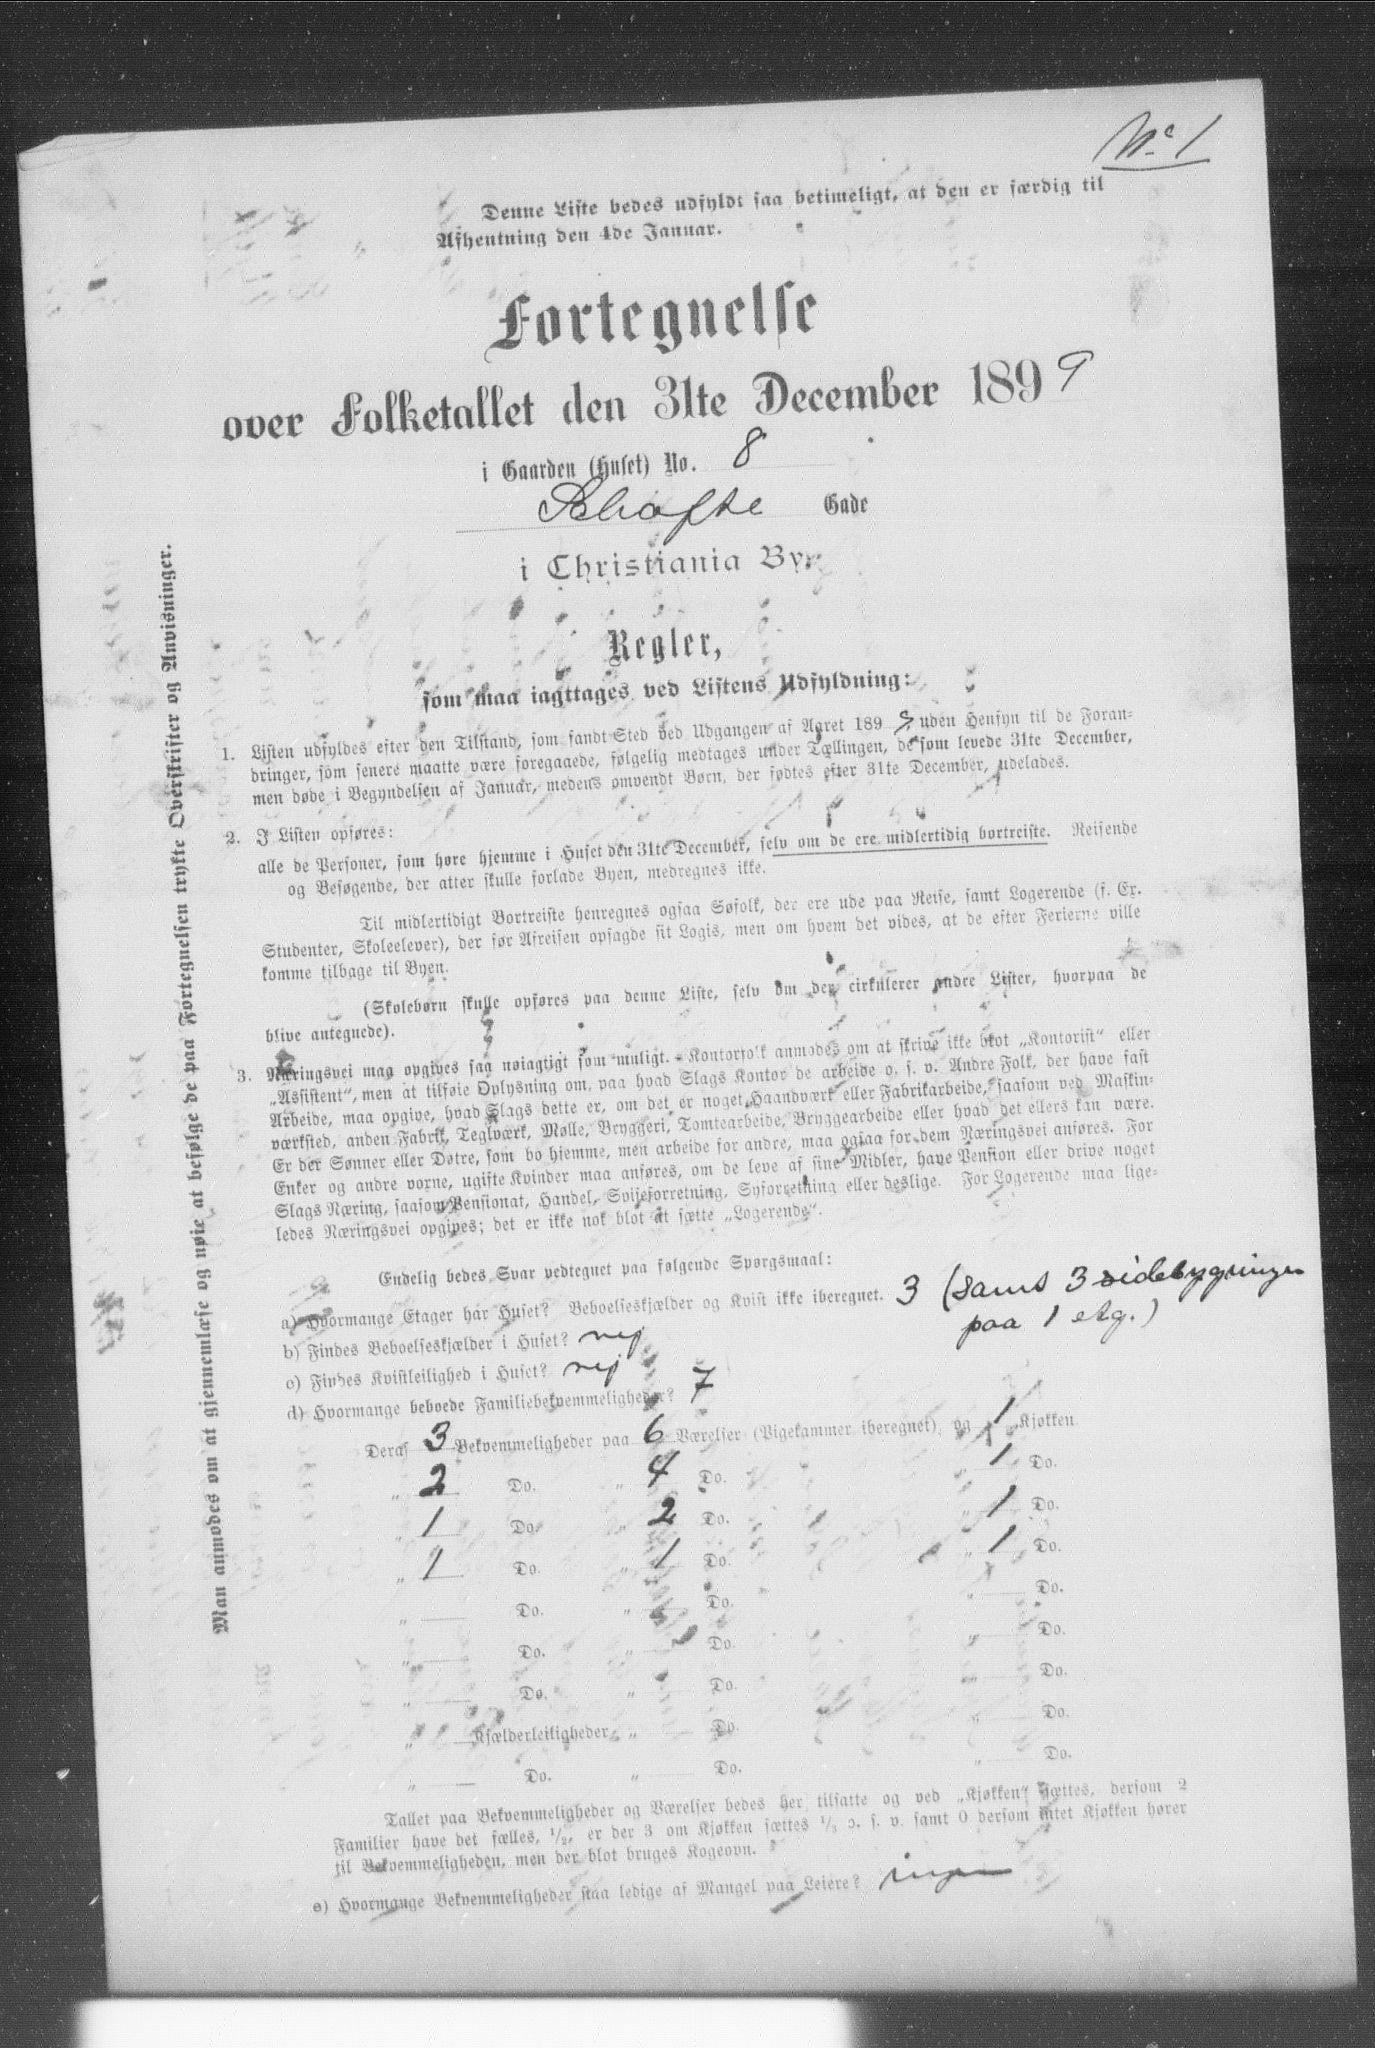 No 1
Denne Liste bedes udfyldt saa betimeligt, at den er færdig til
Afhentning den 4de Januar.
Fortegnelse
over Folketallet den 31te December 1899
i Gaarden (Huset) No. 8
Schafte Gade
i Christiania By.
Regler,
som maa iagttages ved Listens Udfyldning:
1. Listen udfyldes efter den Tilstand, som fandt Sted ved Udgangen af Aaret 1899, uden Hensyn til de Foran-
dringer, som senere maatte være foregaaede, følgelig medtages under Tællingen, de som levede 31te December,
men døde i Begyndelsen af Januar, medens omvendt Børn, der fødtes efter 31te December, udelades.
2. I Listen opføres:
alle de Personer, som høre hjemme i Huset den 31te December, selv om de ere midlertidig bortreiste. Reisende
og Besøgende, der atter skulle forlade Byen, medregnes ikke.
Til midlertidigt Bortreiste henregnes ogsaa Søfolk, der ere ude paa Reise, samt Logerende (f. Ex.
Studenter, Skoleelever), der før Afreisen opsagde sit Logis, men om hvem det vides, at de efter Ferierne ville
komme tilbage til Byen.
(Skolebørn skulle opføres paa denne Liste, selv om der cirkulerer andre Lister, hvorpaa de
blive antegnede).
3. Næringsvei maa opgives saa nøiagtigt som muligt. - Kontorfolk anmodes om at skrive ikke blot „Kontorist" eller
„Assistent", men at tilføie Oplysning om, paa hvad Slags Kontor de arbeide o. s. v. Andre Folk, der have fast
Arbeide, maa opgive, hvad Slags dette er, om det er noget Haandværk eller Fabrikarbeide, saasom ved Maskin-
værksted, anden Fabrik, Teglværk, Mølle, Bryggeri, Tomtearbeide, Bryggearbeide eller hvad det ellers kan være.
Er der Sønner eller Døtre, som bo hjemme, men arbeide for andre, maa ogsaa for dem Næringsvei anføres. For
Enker og andre voxne, ugifte Kvinder maa anføres, om de leve af sine Midler, have Pension eller drive noget
Slags Næring, saasom Pensionat, Handel, Spiseforretning, Syforretning eller deslige. For Logerende maa lige-
ledes Næringsvei opgives; det er ikke nok blot at sætte „Logerende".
Endelig bedes Svar vedtegnet paa følgende Spørgsmaal:
a) Hvormange Etager har Huset? Beboelseskjælder og Kvist ikke iberegnet. 3 (samt 3 sidebygninger
paa 1 etg.)
b) Findes Beboelseskjælder i Huset? nej
c) Findes Kvistleilighed i Huset? nej
d) Hvormange beboede Familiebekvemmeligheder? 7
Deraf 3 Bekvemmeligheder paa 6 Værelser (Pigekammer iberegnet), og 1 Kjøkken
„ 2 Do. „ 4 Do. „ 1 Do.
„ 1 Do. „ 2 Do. „ 1 Do.
„ 1 Do. „ 1 Do. „ 1 Do.
„ Do. „ Do. „ Do.
„ Do. „ Do. „ Do.
„ Do. „ Do. „ Do.
„ Kjælderleiligheder „ Do. „ Do.
„ Do. „ Do. „ Do.
Tallet paa Bekvemmeligheder og Værelser bedes her tilsatte og ved „Kjøkken" sættes, dersom 2
Familier have det fælles, 1/2, er der 3 om Kjøkken sættes 1/3 o. s. v. samt 0 dersom intet Kjøkken hører
til Bekvemmeligheden, men der blot bruges Kogeovn.
e) Hvormange Bekvemmeligheder staa ledige af Mangel paa Leiere? ingen
Man anmodes om at gjennemlæse og nøie at befølge de paa Fortegnelsen trykte Overskrifter og Anvisninger.